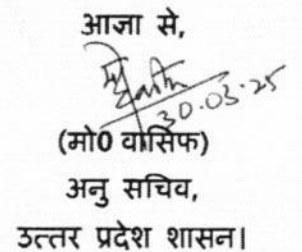 आज्ञा से,
30.03.25
(मो0 वासिफ)
अनु सचिव,
उत्तर प्रदेश शासन।